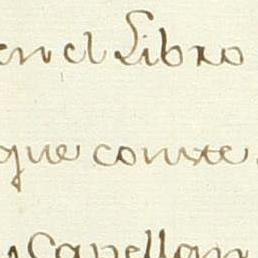 en el Libro
que conste.
Capellan